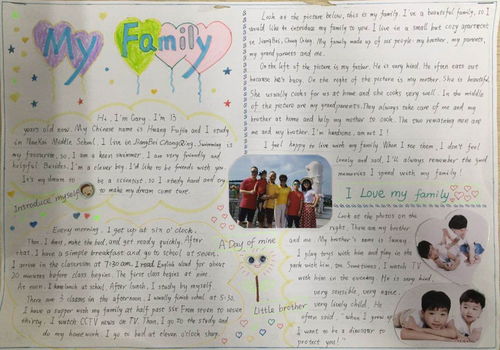 My Family
Hi, I'm Gary. I'm 13
years old now. My Chinese name is Huang Fujia and I study
in NanKai Middle School. I live in JiangBei ChongQing. Swimming is
my favourite, so, I am a keen swimmer. I am very friendly and
helpful. Besides, I'm a clever boy. I'd like to be friends with you
It's my dream to be a scientist, so I study hard and try
to make my dream come ture.
Introduce myself
Look at the picture below, this is my family. I've a beautiful family, so I
would like to introduce my family to you. I live in a small but cozy apartment
in JiangBei, Chong Qing. My family made up of six people: my brother, my parents,
my grandparents and me.
On the left of the picture is my father. He is very kind. He often eats out
because he's busy. On the right of the picture is my mother. She is beautiful.
She usually cooks for us at home and she cooks very well. In the middle
of the picture are my grandparents. They always take care of me and my
brother at home and help my mother to cook. The two remaining men are
me and my brother. I'm handsome, am not I!
I feel happy to live with my family. When I see them, I don't feel
lonely and sad. I'll always remember the good
memories I spend with my family!
I Love my family
Every morning, I get up at six o'clock.
Then, I dress, make the bed, and get ready quickly. After
that, I have a simple breakfast and go to school at seven.
I arrive in the classroom at 7:30 am. I read English and for about
20 minutes before class begins. The first class begins at nine.
At noon, I have lunch at school. After lunch, I study by myself.
There are 3 classes in the afternoon. I usually finish school at 5:30.
I have a supper with my family at half past six. From seven to seven
thirty, I watch CCTV news on TV. Then, I go to the study and
do my home work. I go to bed at eleven o'clock sharp.
A Day of mine
Little brother
Look at the photos on the
right. These are my brother
and me. My brother's name is Sunny.
I play toys with him and play in the
park with him, too. Sometimes, I watch TV
with him in the evening. He is very kind,
very sensible, very naive,
very lovely child. He
often said, "when I grew up
I want to be a dinosaur to
protect you!"